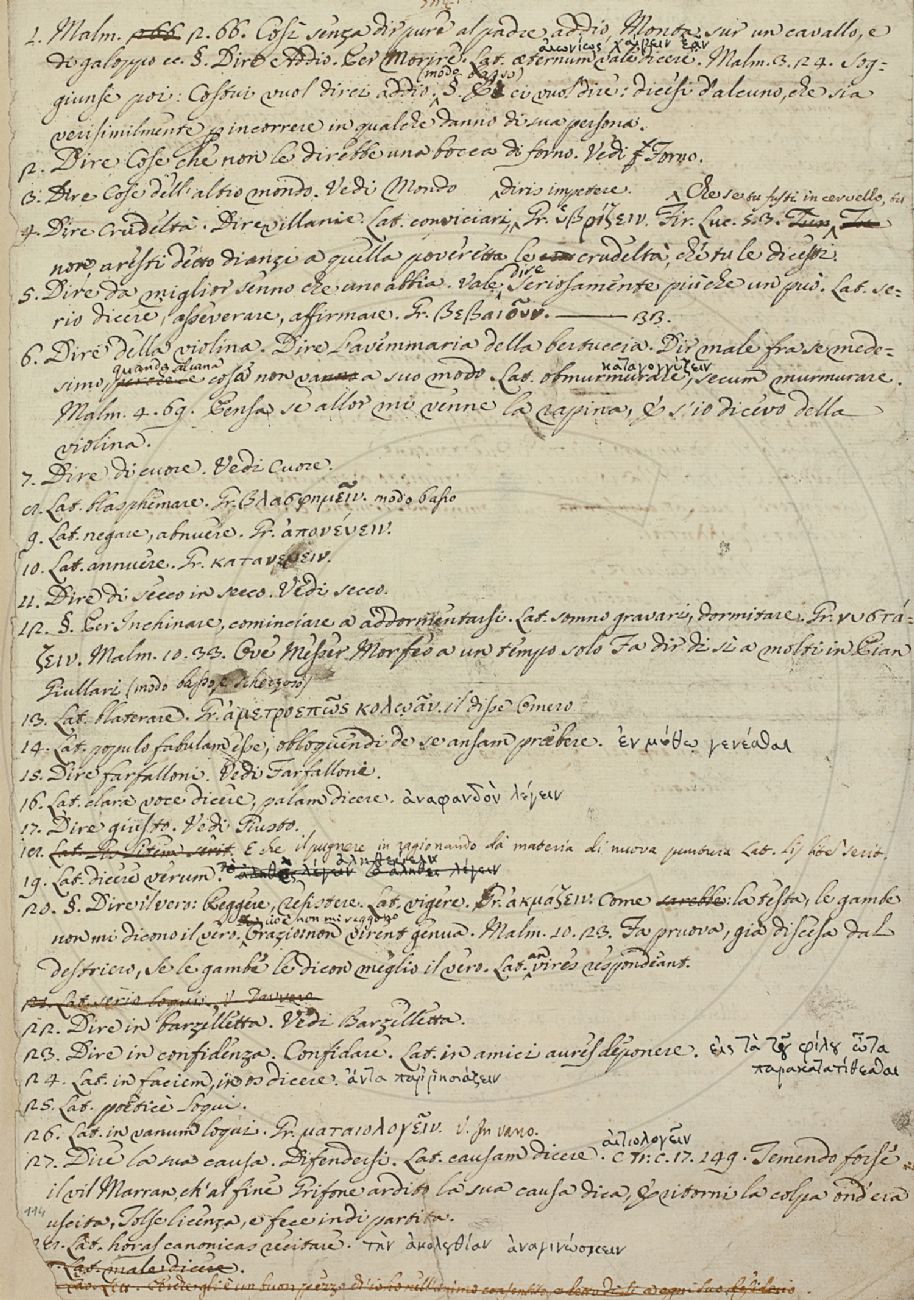 1. Malm. 266 2.66. Così senza dir pure al padre addio, Monta sur un cavallo, e
αἰωνίως χαίρειν ἐᾶν
di galoppo ec. §. Dire Addio. Per Morire. Lat. æternum vale dicere. Malm. 3.24. Sog-
(modo basso)
giunse poi: Costui vuol dirci addio. §. E ci vuol dire: dicesi d'alcuno, che sia
verisimilmente p incorrere in qualche danno di sua persona.
2. Dire Cose che non le direbbe una bocca di forno. Vedi Forno.
3. Dire Cose dell'altro mondo. Vedi Mondo
diris impetere. Che se tu fussi in cervello, tu
4. Dire Crudeltà. Dire villanie. Lat. conviciari, Gr. ὑβρίζειν. Fir. Luc. 5.3. Tu
non aresti detto dianzi a quella poveretta le crudeltà, che tu le dicesti.
dire
5. Dire da miglior senno che uno abbia. Vale Seriosamente più che un può. Lat. se-
rio dicere, asseverare, affirmare. Gr. βεβαιοῦν. ——— 33.
6. Dire della violina. Dire l'avemmaria della bertuccia. Dir male fra se mede-
quando alcuna καταγογγύζειν
simo, cosa non va a suo modo. Lat. obmurmurare, secum murmurare.
Malm. 4.69. Pensa, se allor mi venne la rapina, E s'io dicevo della
violina.
7. Dire di cuore. Vedi Cuore.
8. Lat. blasphemare. Gr. βλασφημεῖν. modo basso
9. Lat. negare, abnuere. Gr. ἀπονεύειν.
10. Lat. annuere. Gr. κατανεύειν.
11. Dire di secco in secco. Vedi secco.
12. §. Per Inchinare, cominciare a addormentarsi. Lat. somno gravari, dormitare. Gr. νυστά-
ζειν. Malm. 10.33. Ove Messer Morfeo a un tempo solo Fa dir di sì a molti in Pian
Giullari (modo basso, e scherzoso)
13. Lat. blaterare. Gr. ἀμετροεπῶς κολῳᾶν. il disse Omero
14. Lat. populo fabulam esse, obloquendi de se ansam præbere. ἐν μύθῳ γενέσθαι
15. Dire farfalloni. Vedi Farfallone.
16. Lat. clara voce dicere, palam dicere. ἀναφανδὸν λέγειν
17. Dire giusto. Vedi Giusto.
18. Lat. Lis litem serit. E che il pugnere in ragionando dà materia di nuova puntura Lat. lis litem serit.
ἀληθεύειν
19. Lat. dicere verum. τὸ ἀληθὲς λέγειν τὰ ἀληθῆ λέγειν
20. §. Dire il vero: Reggere, resistere. Lat. vigere. Gr. ἀκμάζειν. Come sarebbe: la testa, le gambe
cioè non mi reggono
non mi dicono il vero, Orazio: non virent genua. Malm. 10.23. Fa pruova, già discesa dal
destriero, Se le gambe le dicon meglio il vero. Lat. an vires respondeant.
21. Lat. serio loqui. V. Davvero
22. Dire in barzelletta. Vedi Barzelletta.
23. Dire in confidenza. Confidare. Lat. in amici aures deponere. εἰς τὰ τοῦ φίλου ὦτα
παρακατατίθεσθαι
24. Lat. in faciem, in os dicere. ἄντα παρρησιάζειν
25. Lat. poeticè loqui.
26. Lat. in vanum loqui. Gr. ματαιολογεῖν. V. In vano.
αἰτιολογεῖν
27. Dire la sua causa. Difendersi. Lat. causam dicere. C Fr. C. 17.149. Temendo forse
il vil Marran, ch'al fine Grifone ardito la sua causa dica, E ritorni la colpa ond'era
114 uscita, Tolse licenza, e fece indi partita.
28. Lat. horas canonicas recitare. τὴν ἀκολουθίαν ἀναγινώσκειν
Lat. male dicere.